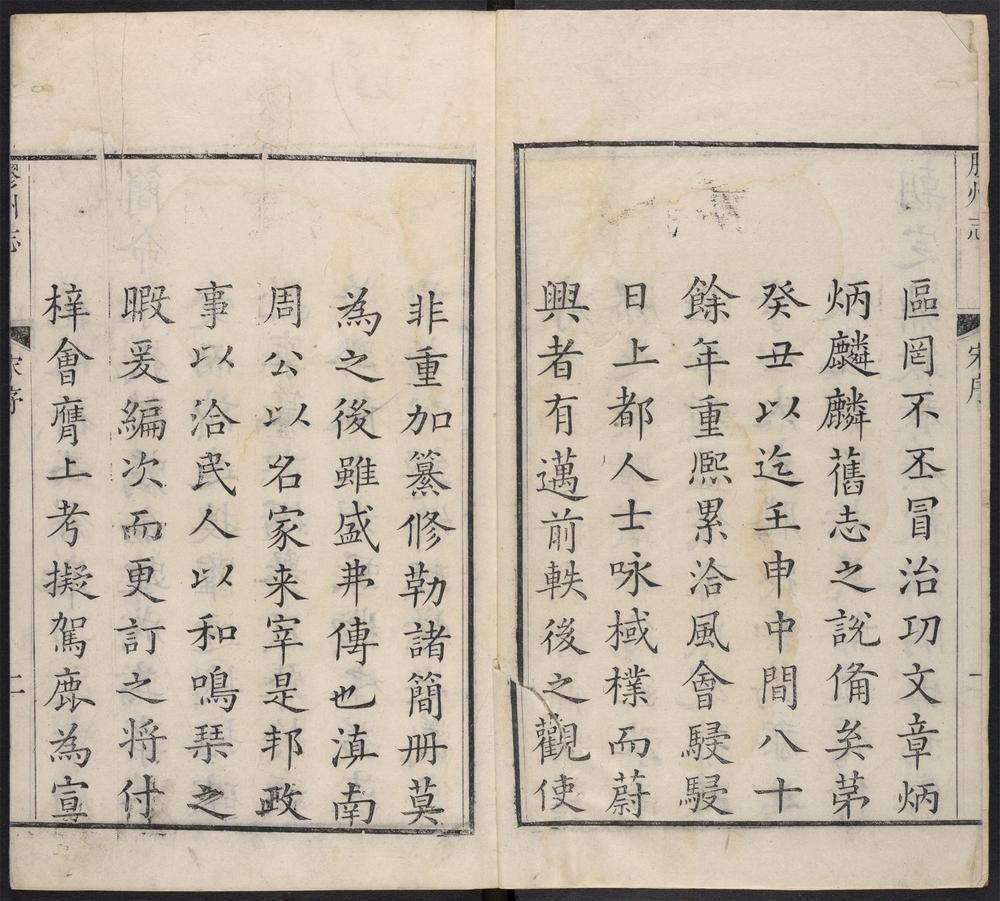 膠州志
宋序
一
區罔不丕冒治功文章炳
炳麟麟舊志之説俻矣苐
癸丑以迄壬申中間八十
餘年重熈累洽風會駸駸
日上都人士咏棫樸而蔚
興者有邁前軼後之觀使
非重加纂修勒諸簡册莫
為之後雖盛弗傳也滇南
周公以名家来宰是邦政
事以洽民人以和鳴琹之
暇爰編次而更訂之将付
梓會膺上考擬駕鹿為宣
膠州志
宋序
二